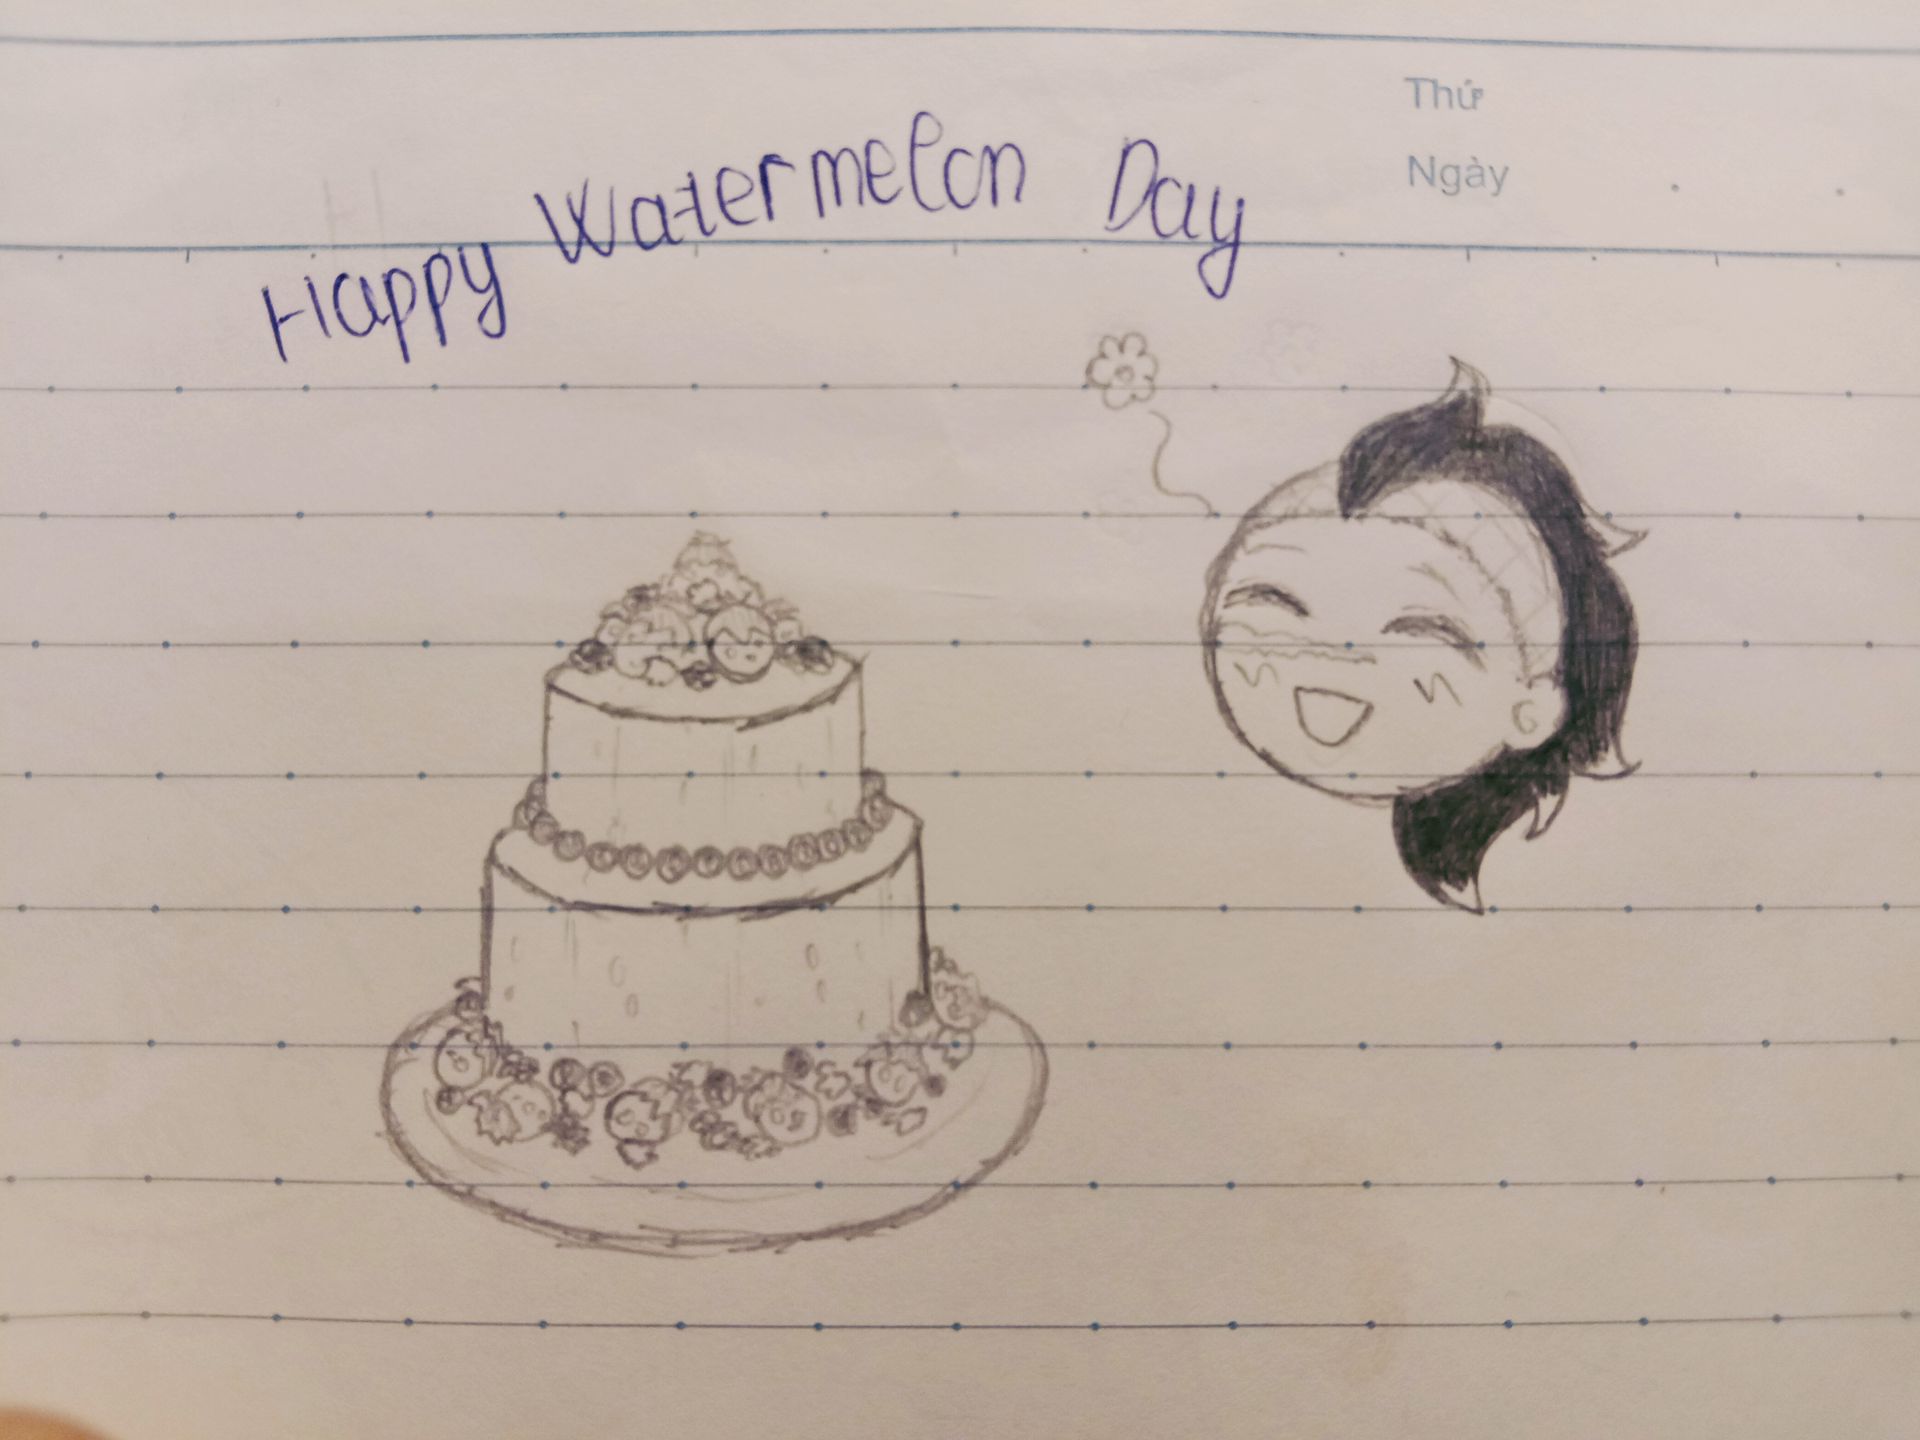 Thứ
Ngày
Happy Watermelon Day